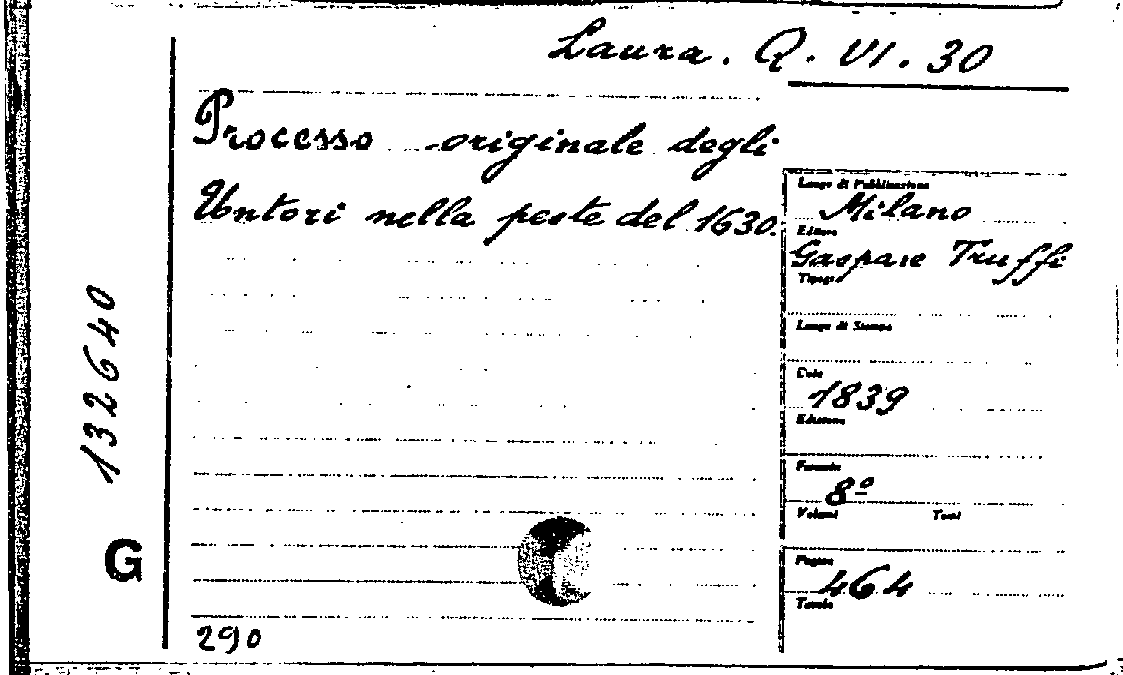 Laura. Q. VI. 30
Processo originale degli
Untori nella peste del 1630.
Luogo di Pubblicazione
Milano
Editore
Gaspare Truffi
Tipogr
Luogo di Stampa
Data
1839
Edizione
Formato
8º
Volumi Tomi
Pagine
464
Tavole
132640
G
290